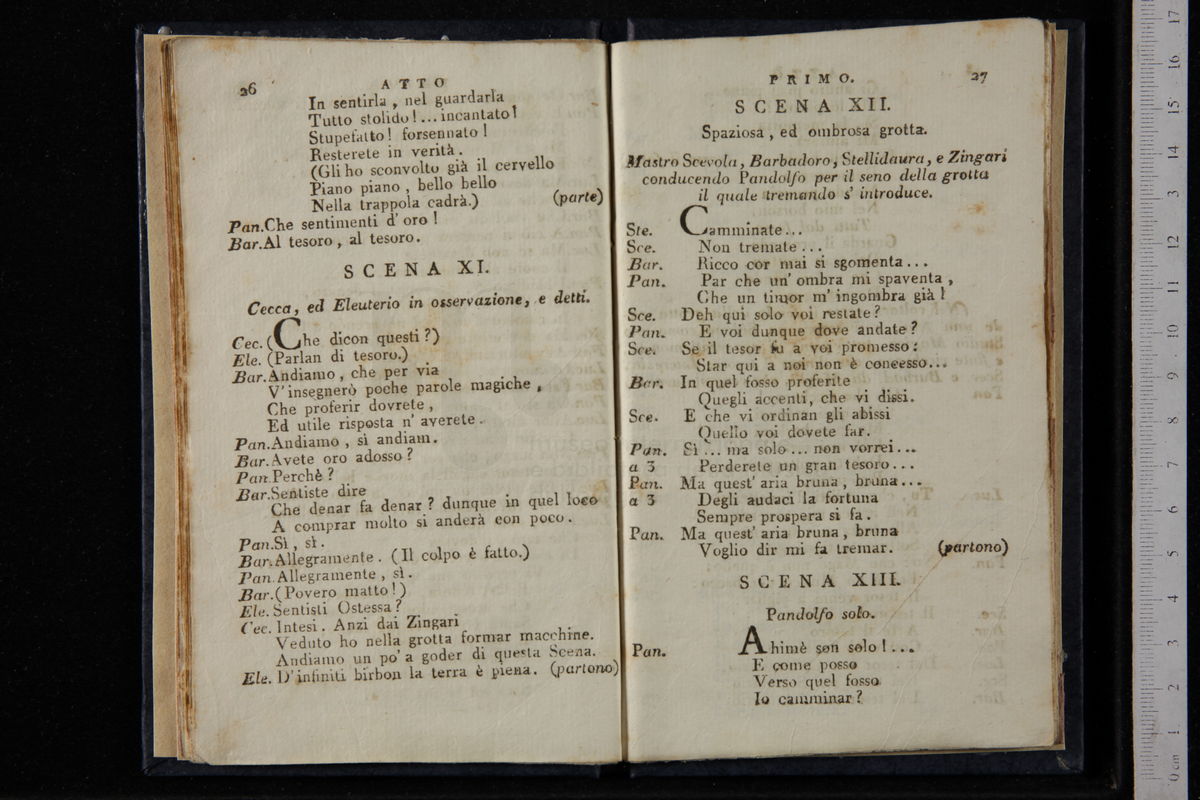 26
ATTO
In sentirla , nel guardarla
Tutto stolido ! ... incantato !
Stupefatto ! forsennato !
Resterete in verità .
(Gli ho sconvolto già il cervello
Piano piano , bello bello
Nella trappola cadrà.) (parte)
Pan. Che sentimenti d' oro !
Bar. Al tesoro , al tesoro .
SCENA XI.
Cecca, ed Eleuterio in osservazione, e detti.
Cec. (Che dicon questi ?)
Ele. (Parlan di tesoro.)
Bar. Andiamo , che per via
V' insegnerò poche parole magiche ,
Che proferir dovrete ,
Ed utile risposta n' averete .
Pan. Andiamo , sì andiam .
Bar. Avete oro adosso ?
Pan. Perchè ?
Bar. Sentiste dire
Che denar fa denar ? dunque in quel loco
A comprar molto si anderà con poco .
Pan. Sì , sì .
Bar. Allegramente . (Il colpo è fatto.)
Pan. Allegramente , sì .
Bar. (Povero matto !)
Ele. Sentisti Ostessa ?
Cec. Intesi . Anzi dai Zingari
Veduto ho nella grotta formar macchine.
Andiamo un po' a goder di questa Scena.
Ele. D' infiniti birbon la terra è piena. (partono)
PRIMO.
27
SCENA XII.
Spaziosa , ed ombrosa grotta.
Mastro Scevola, Barbadoro, Stellidaura, e Zingari
conducendo Pandolfo per il seno della grotta
il quale tremando s' introduce.
Ste. Camminate ...
Sce. Non tremate ...
Bar. Ricco cor mai si sgomenta ...
Pan. Par che un' ombra mi spaventa ,
Che un timor m' ingombra già !
Sce. Deh qui solo voi restate ?
Pan. E voi dunque dove andate ?
Sce. Se il tesor fu a voi promesso :
Star qui a noi non è concesso...
Bar. In quel fosso proferite
Quegli accenti, che vi dissi.
Sce. E che vi ordinan gli abissi
Quello voi dovete far.
Pan. Sì ... ma solo ... non vorrei ...
a 3 Perderete un gran tesoro ...
Pan. Ma quest' aria bruna , bruna ...
a 3 Degli audaci la fortuna
Sempre prospera si fa .
Pan. Ma quest' aria bruna , bruna
Voglio dir mi fa tremar. (partono)
SCENA XIII.
Pandolfo solo.
Pan. Ahimè son solo ! ...
E come posso
Verso quel fosso
Io camminar ?
0 cm 1 2 3 4 5 6 7 8 9 10 11 12 13 14 15 16 17